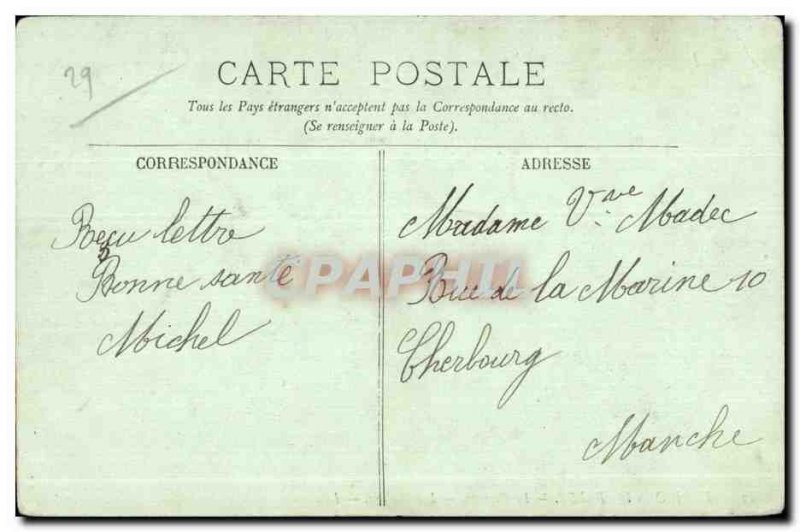 29
CARTE POSTALE
Tous les Pays étrangers n'acceptent pas la Correspondance au recto.
(Se renseigner à la Poste).
CORRESPONDANCE
Reçu lettre
Bonne santé
Michel
ADRESSE
Madame Vve Madec
Rue de la Marine 10
Cherbourg
Manche
CPAPHIL